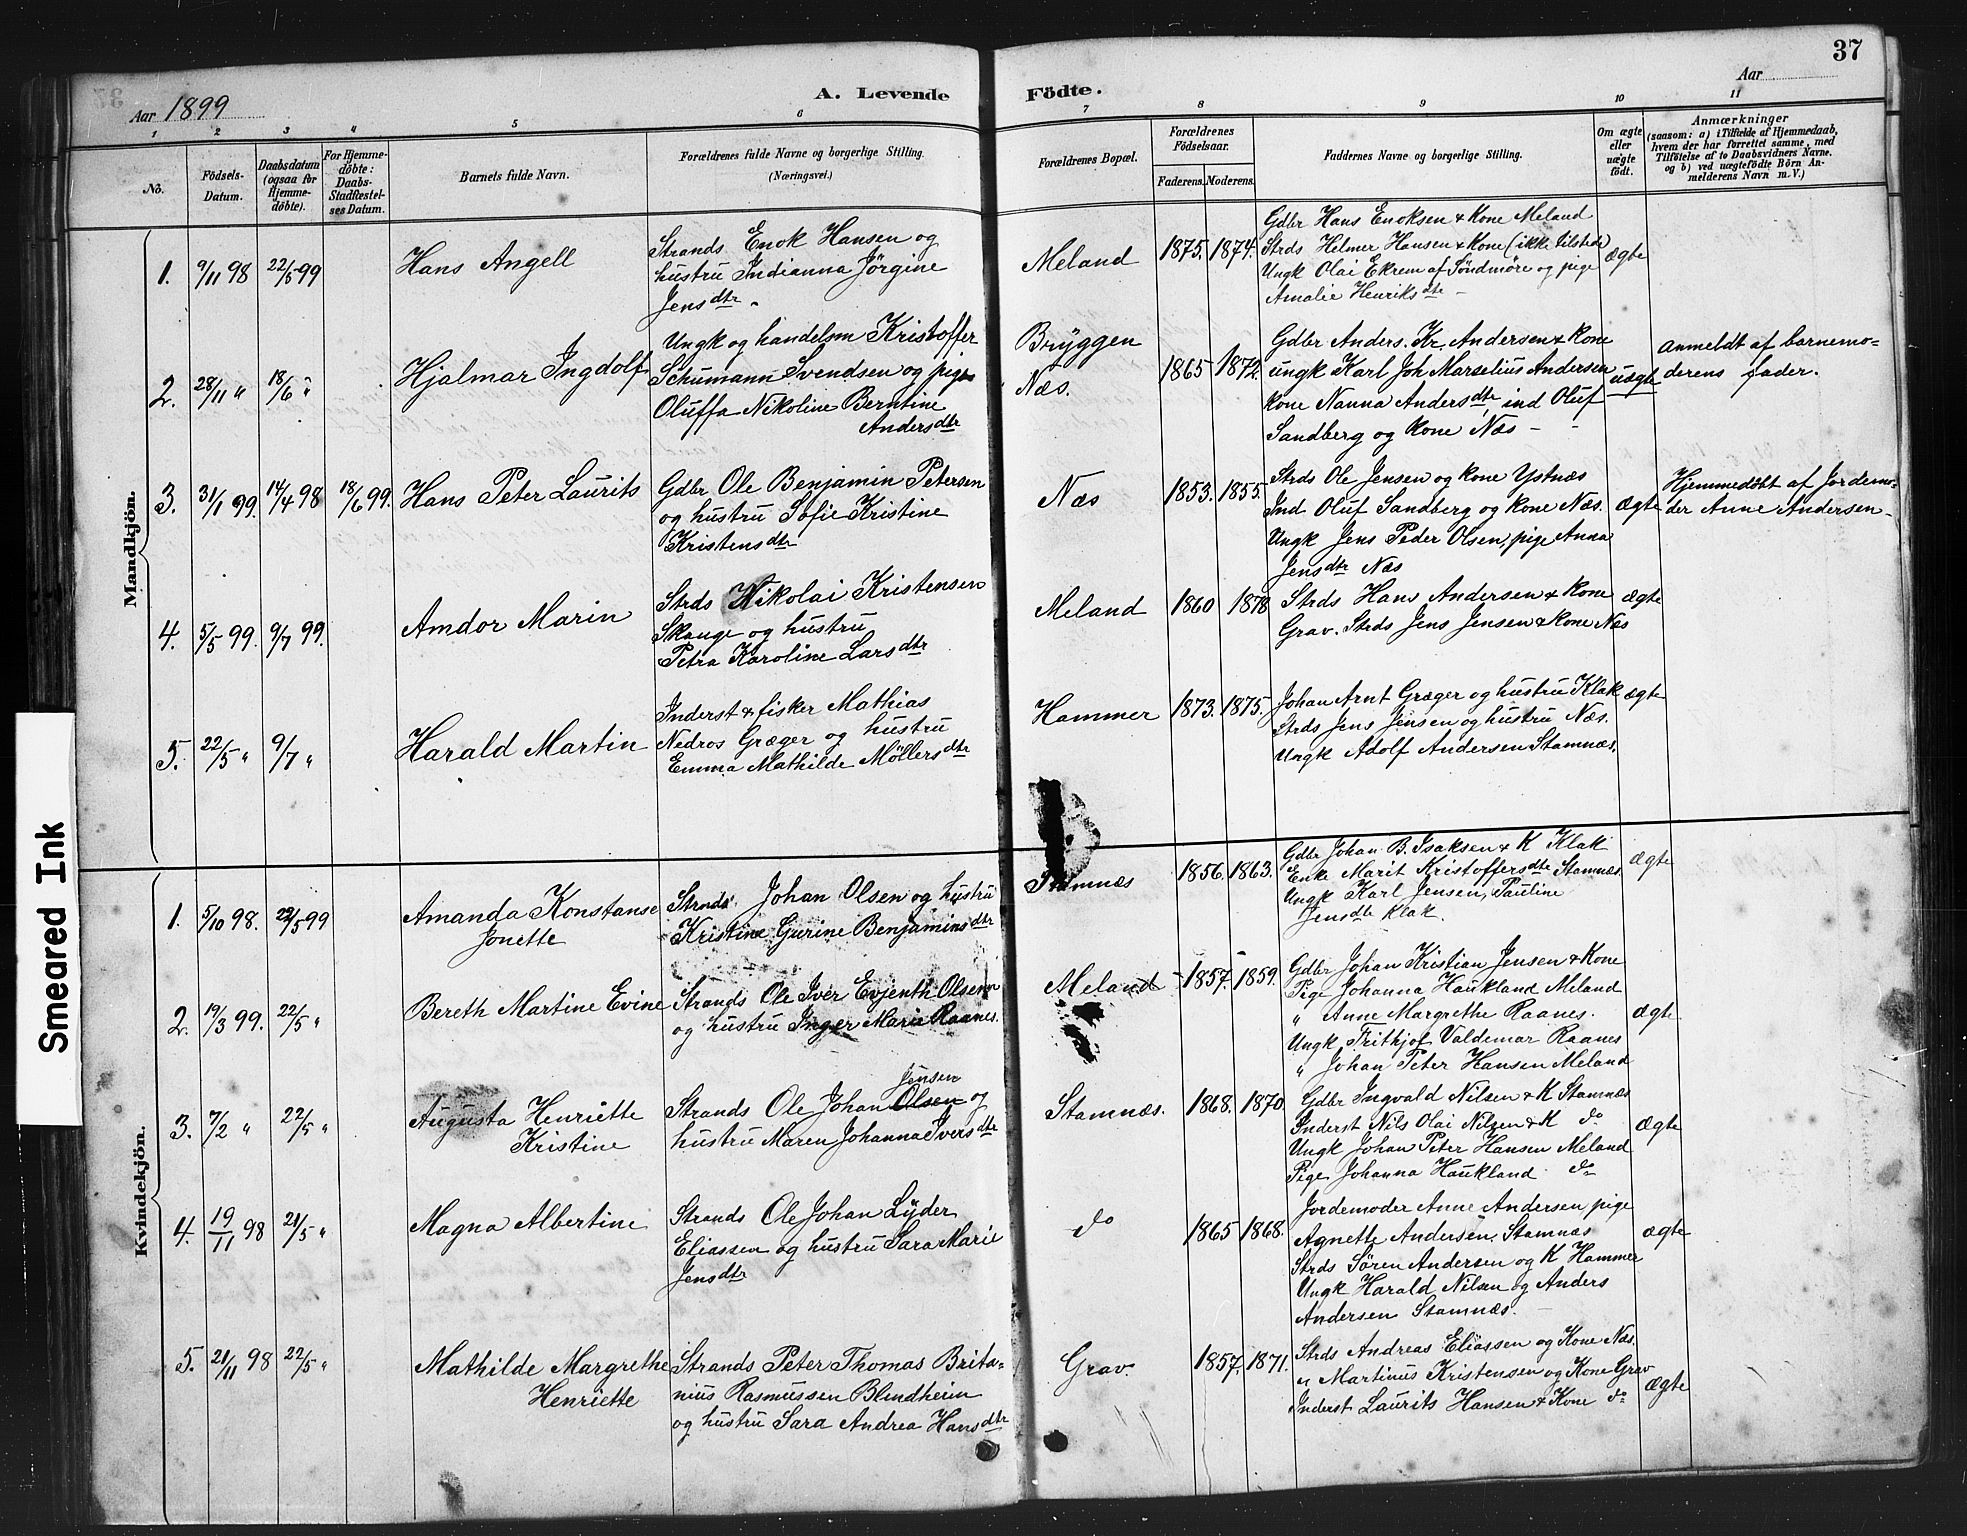 37
Aar 1899
A. Levende Födte.
Aar
1 2 3 4 5 6 7 8 9 10 11
No.
Födsels-Datum.
Daabsdatum (ogsaa for Hjemme-döbte).
For Hjemme-döbte: Daabs-Stadfæstel-ses Datum.
Barnets fulde Navn.
Forældrenes fulde Navne og borgerlige Stilling.
(Næringsvei.)
Forældrenes Bopæl.
Forældrenes Födselsaar.
Faderens. Moderens.
Faddernes Navne og borgerlige Stilling.
Om ægte eller uægte födt.
Anmærkninger
(saasom: a) i Tilfælde af Hjemmedaab,
hvem der har forrettet samme, med
Tilföielse af to Daabsvidners Navne.
og b) ved uægtefödte Börn An-
melderens Navn m. V.)
Mandkjön.
1. 9/11 98 22/5 99 Hans Angell
Strands Enok Hansen og
hustru Indianna Jörgine
Jensdtr.
Meland 1875. 1874.
Gdbr Hans Enoksen & Kone Meland
Strds Helmer Hansen & Kone (ikke tilstede
Ungk Olai Ekrem af Söndmöre og pige
Amalie Henriksdtr
ægte
2. 28/11 " 18/6 " Hjalmar Ingdolf
Ungk og handelsm Kristoffer
Schumann Svendsen og pige
Oluffa Nikoline Berntine
Andersdtr
Bryggen
Næs.
1865 1872.
Gdbr Anders. Kr. Andersen & Kone
ungk Karl Joh Marselius Andersen
kone Nanna Andersdtr, ind Oluf
Sandberg og kone Næs
uægte
anmeldt af barnemo-
derens fader.
3. 31/1 99. 14/4 98 18/6 99. Hans Peter Laurits
Gdbr Ole Benjamin Petersen
og hustru Sofie Kristine
Kristensdtr
Næs 1853. 1855.
Strds Ole Jensen og kone Ystnæs
Ind Oluf Sandberg og kone Næs.
Ungk Jens Peder Olsen, pige Anna
Jensdtr Næs
ægte
Hjemmedöbt af Jordemo-
der Anne Andersen
4. 5/5 99. 9/7 99. Amdor Marin
Strds Nikolai Kristensen
Skauge og hustru
Petra Karoline Larsdtr
Meland 1860 1878
Strds Hans Andersen & kone
Grav. Strds Jens Jensen & Kone Næs
ægte
5. 22/5 " 9/7 " Harald Martin
Inderst & fisker Mathias
Nedros Græger og hustru
Emma Mathilde Möllersdtr
Hammer 1873. 1875.
Johan Arnt Græger og hustru Klak
Strds Jens Jensen og hustru Næs.
Ungk Adolf Andersen Stamnæs.
ægte
Smeared Ink
Kvindekjön.
1. 5/10 98. 22/5 99 Amanda Konstanse
Jonette
Strands. Johan Olsen og hustru
Kristine Gurine Benjaminsdtr
Stamnæs 1856. 1863.
Gdbr Johan B. Isaksen & K Klak
Enke Marit Kristoffersdtr Stamnæs
Ungk Karl Jensen, Pauline
Jensdtr Klak.
ægte
2. 19/3 99. 22/5 " Bereth Martine Evine
Strands Ole Iver Evjenth Olsen
og hustru Inger Marie Raanes.
Meland 1857. 1859.
Gdbr Johan Kristian Jensen & Kone
Pige Johanna Haukland Meland
" Anne Margrethe Raanes.
Ungk Frithjof Valdemar Raanes
" Johan Peter Hansen Meland
ægte
3. 7/2 " 22/5 " Augusta Henriette
Kristine
Jensen
Strands Ole Johan Olsen og
hustru Maren Johanna Iversdtr
Stamnæs. 1868. 1870
Gdbr Ingvald Nilsen & K Stamnæs
Inderst Nils Olai Nilsen & K do
Ungk Johan Peter Hansen Meland
Pige Johanna Haukland do
ægte
4. 19/11 98 21/5 " Magna Albertine
Strands Ole Johan Lyder
Eliassen og hustru Sara Marie
Jensdtr
do 1865 1868.
Jordemoder Anne Andersen, pige
Agnette Andersen, Stamnæs
Strds Sören Andersen og K Hammer
Ungk Harald Nilsen og Anders
Andersen Stamnæs.
ægte
5. 21/11 98 22/5 " Mathilde Margrethe
Henriette
Strands Peter Thomas Brita-
nius Rasmussen Blindheim
og hustru Sara Andrea Hansdtr
Grav. 1857. 1871.
Strds Andreas Eliassen og Kone Næs.
" Martinus Kristensen og Kone Grav
Inderst Laurits Hansen & Kone do
ægte